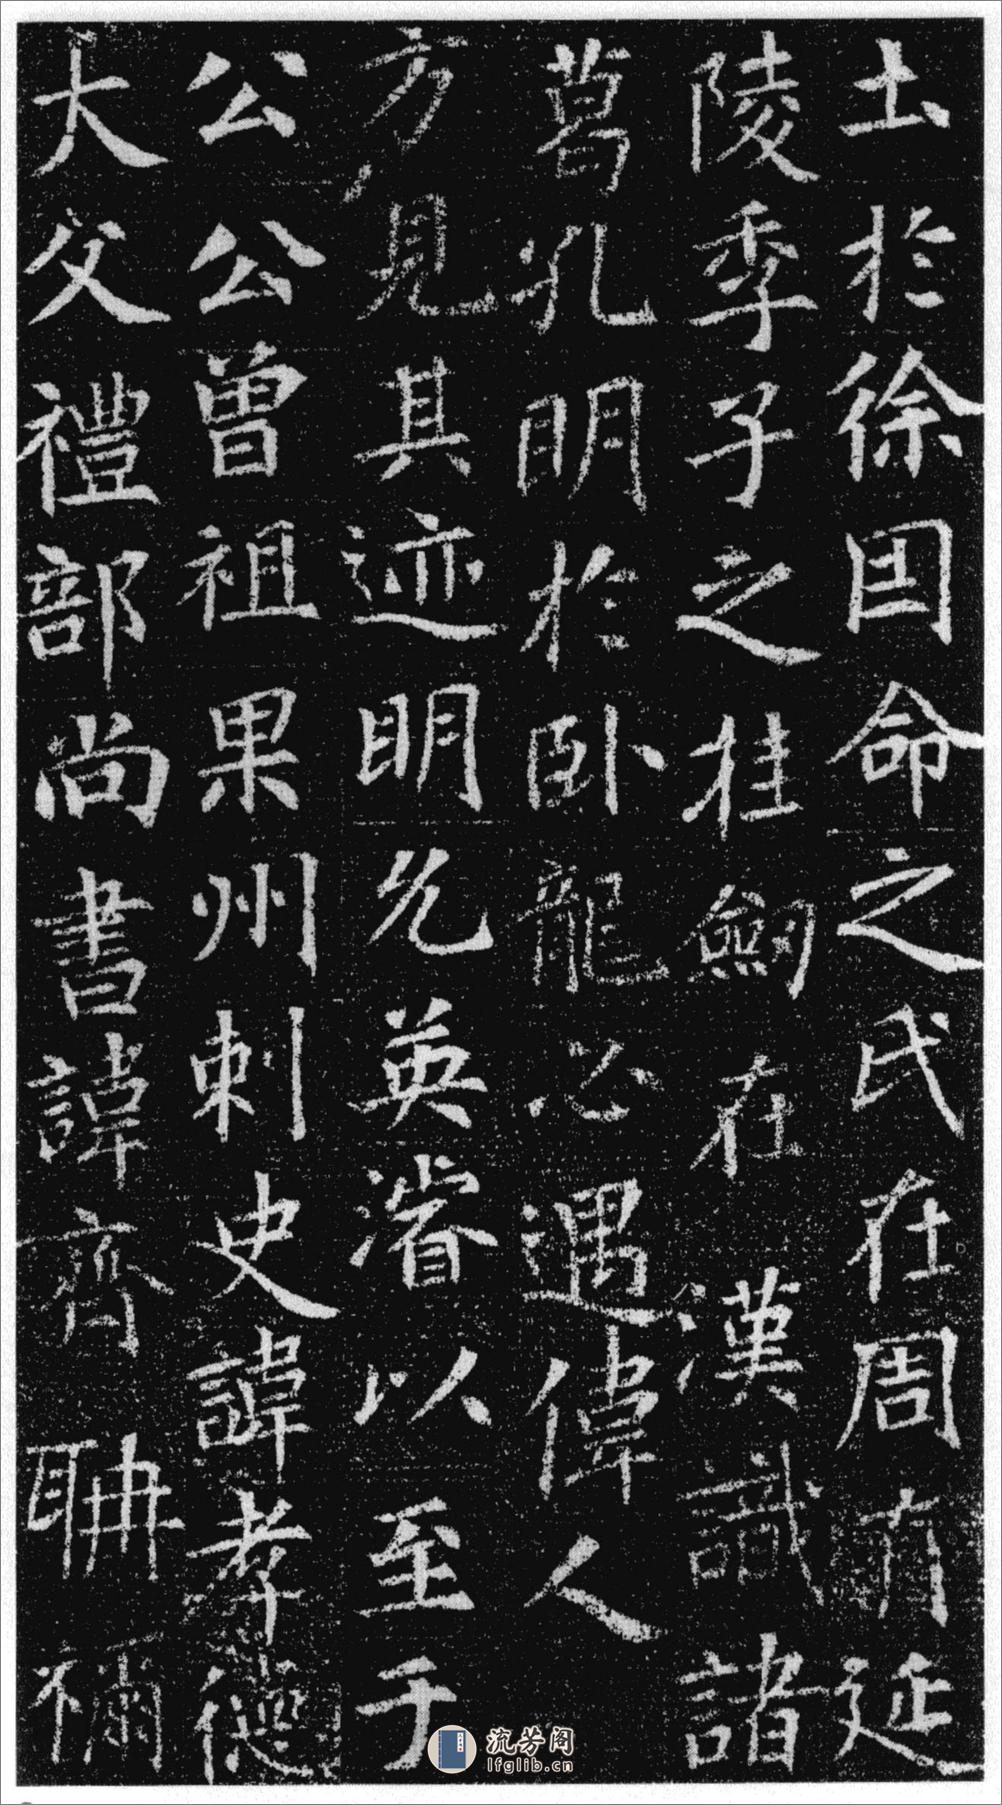 土於徐国命之氏在周有延
陵季子之挂劒在漢識諸
葛孔明於卧龍必遇偉人
方見其迹明允英濬以至于
公公曾祖果州刺史諱孝德
大父禮部尚書諱齊聃禰
流芳阁
lfglib.cn